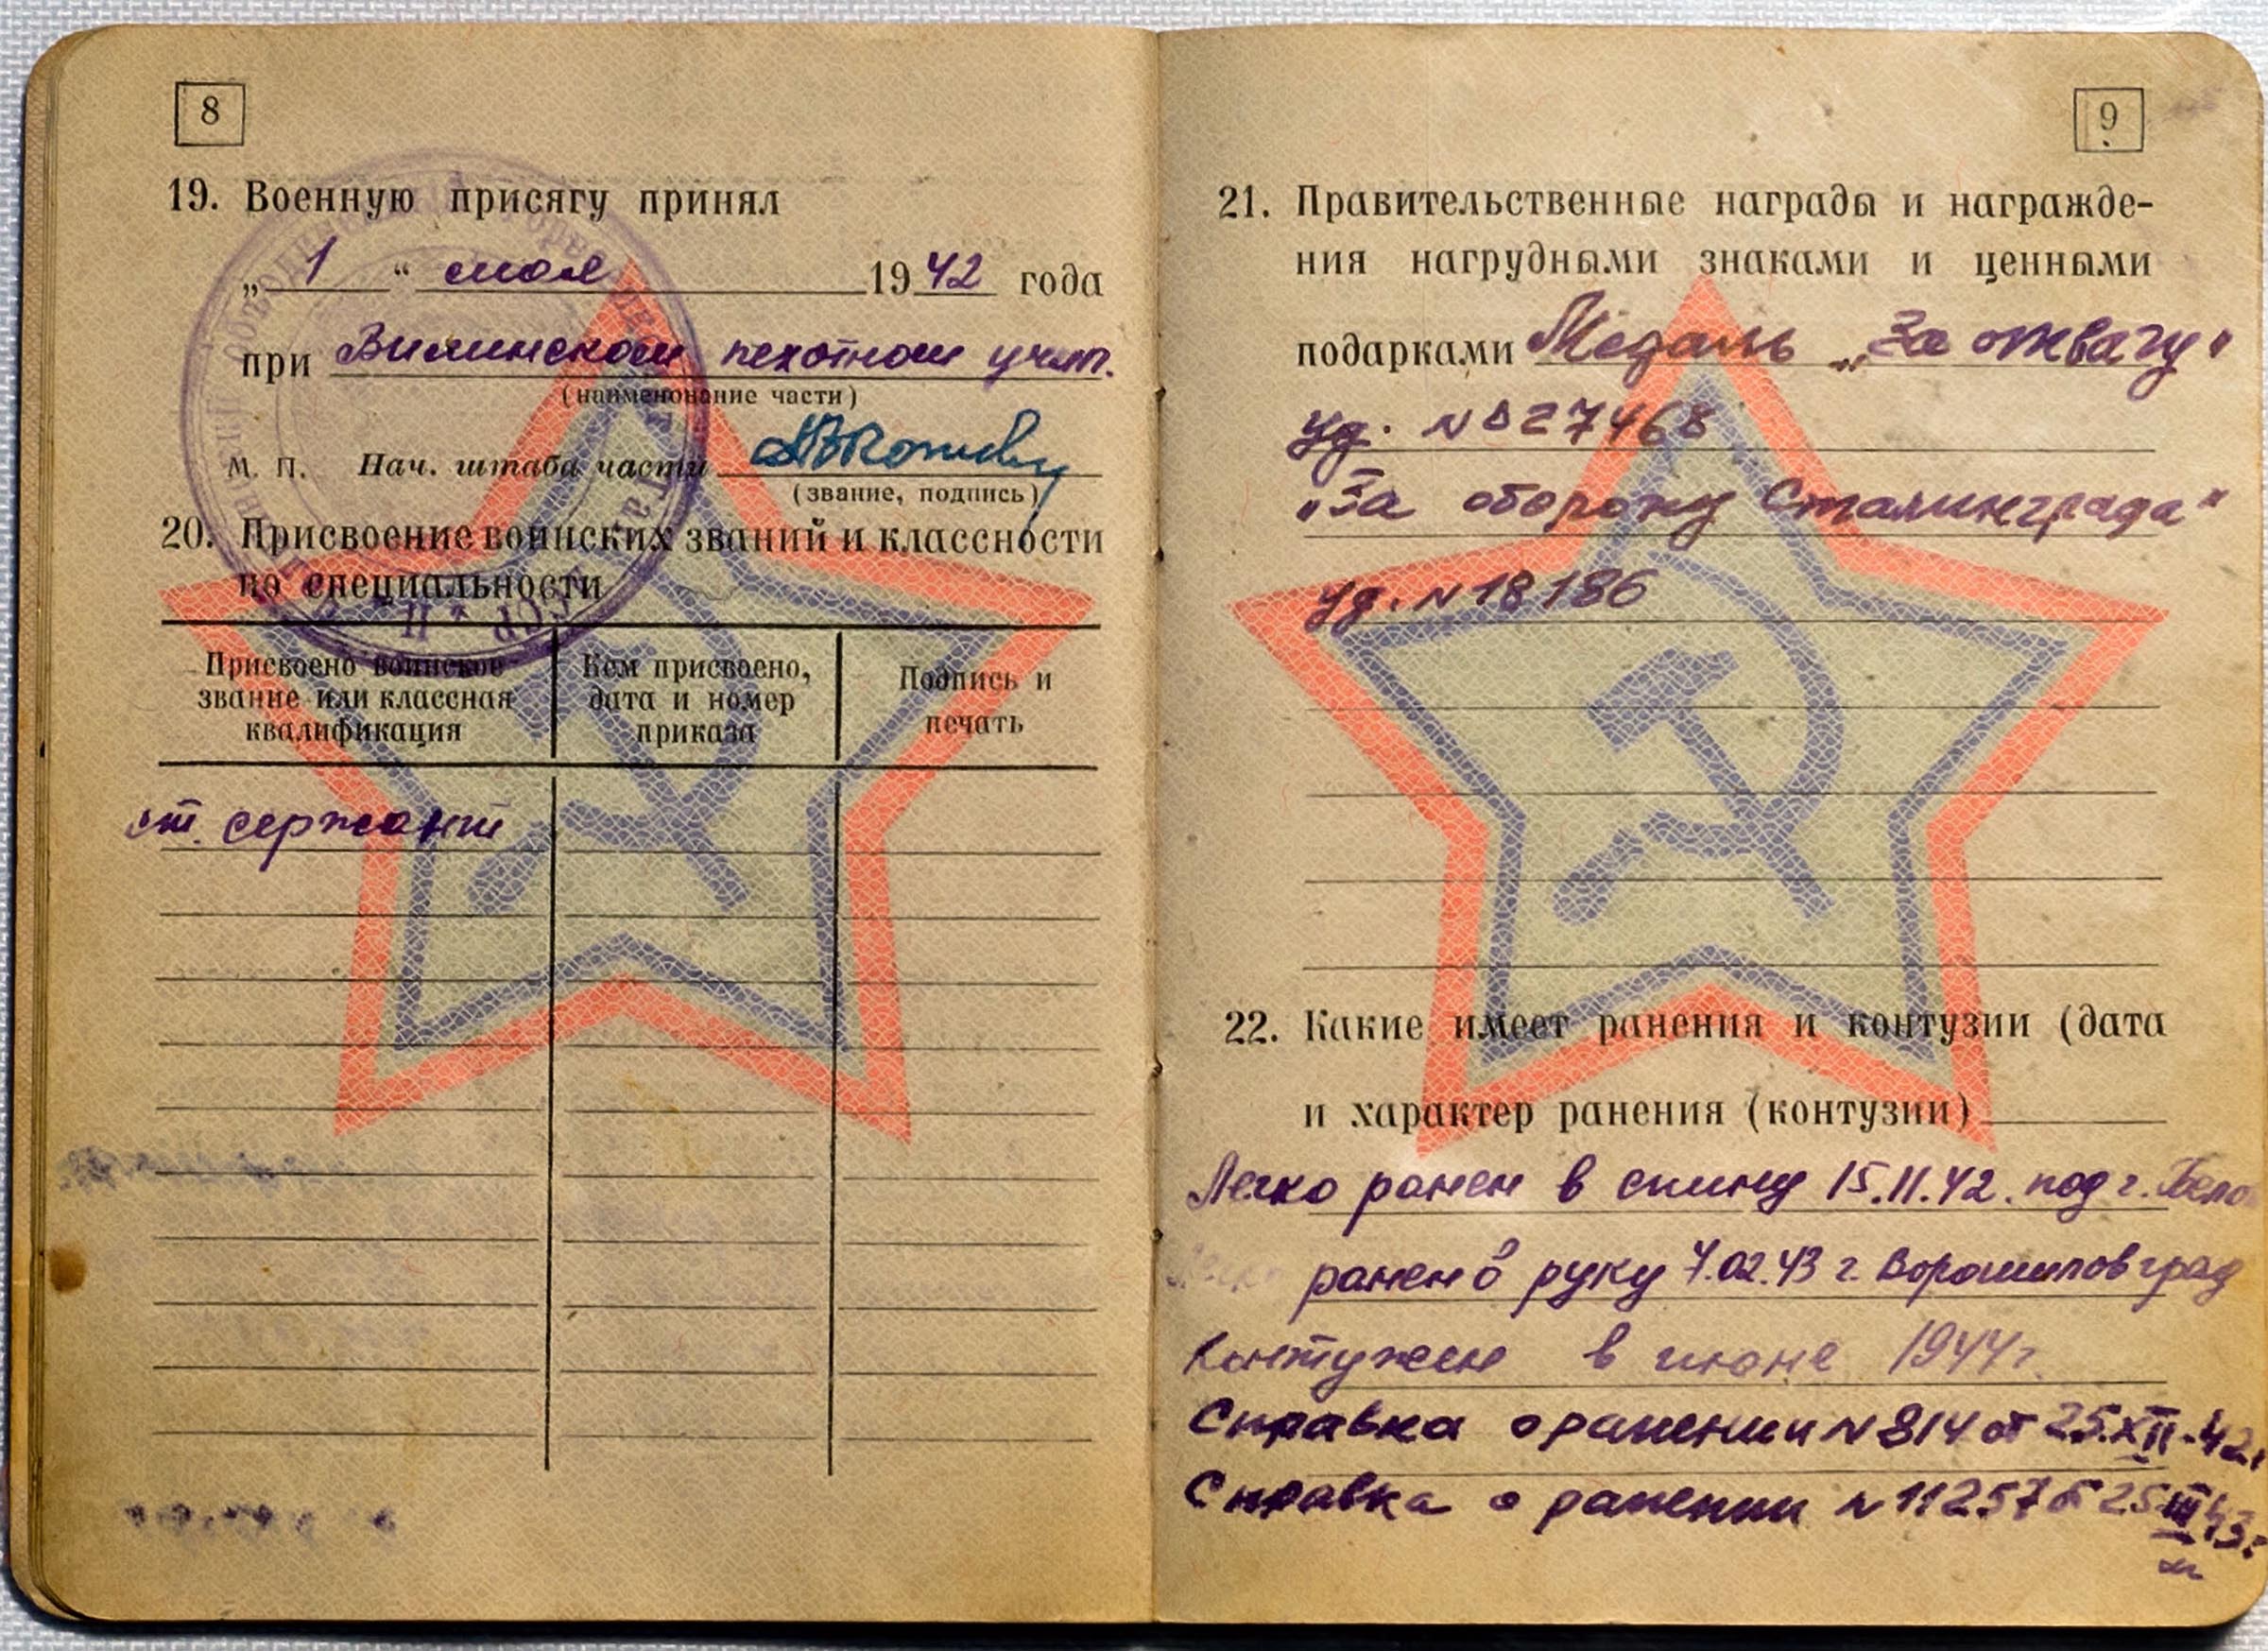 8
19. Военную присягу принял
„ 1 “ мая 1942 года
при Вилинском пехотном учил.
(наименование части)
М. П. Нач. штаба части
(звание, подпись)
20. Присвоение воинских званий и классности
по специальности
Присвоено воинское звание или классная квалификация
Кем присвоено, дата и номер приказа
Подпись и печать
ст. сержант
9
21. Правительственные награды и награжде-
ния нагрудными знаками и ценными
подарками Медаль „За отвагу“
уд. № 827468
„За оборону Сталинграда“
уд. N 18186
22. Какие имеет ранения и контузии (дата
и характер ранения (контузии)
Легко ранен в спину 15.11.42. под г. Бело
Легко ранен в руку 7.02.43 г. Ворошиловград
Контужен в июне 1944г.
Справка о ранении N 814 от 25.XII-42г
Справка о ранении N 11257 от 25 III 43г